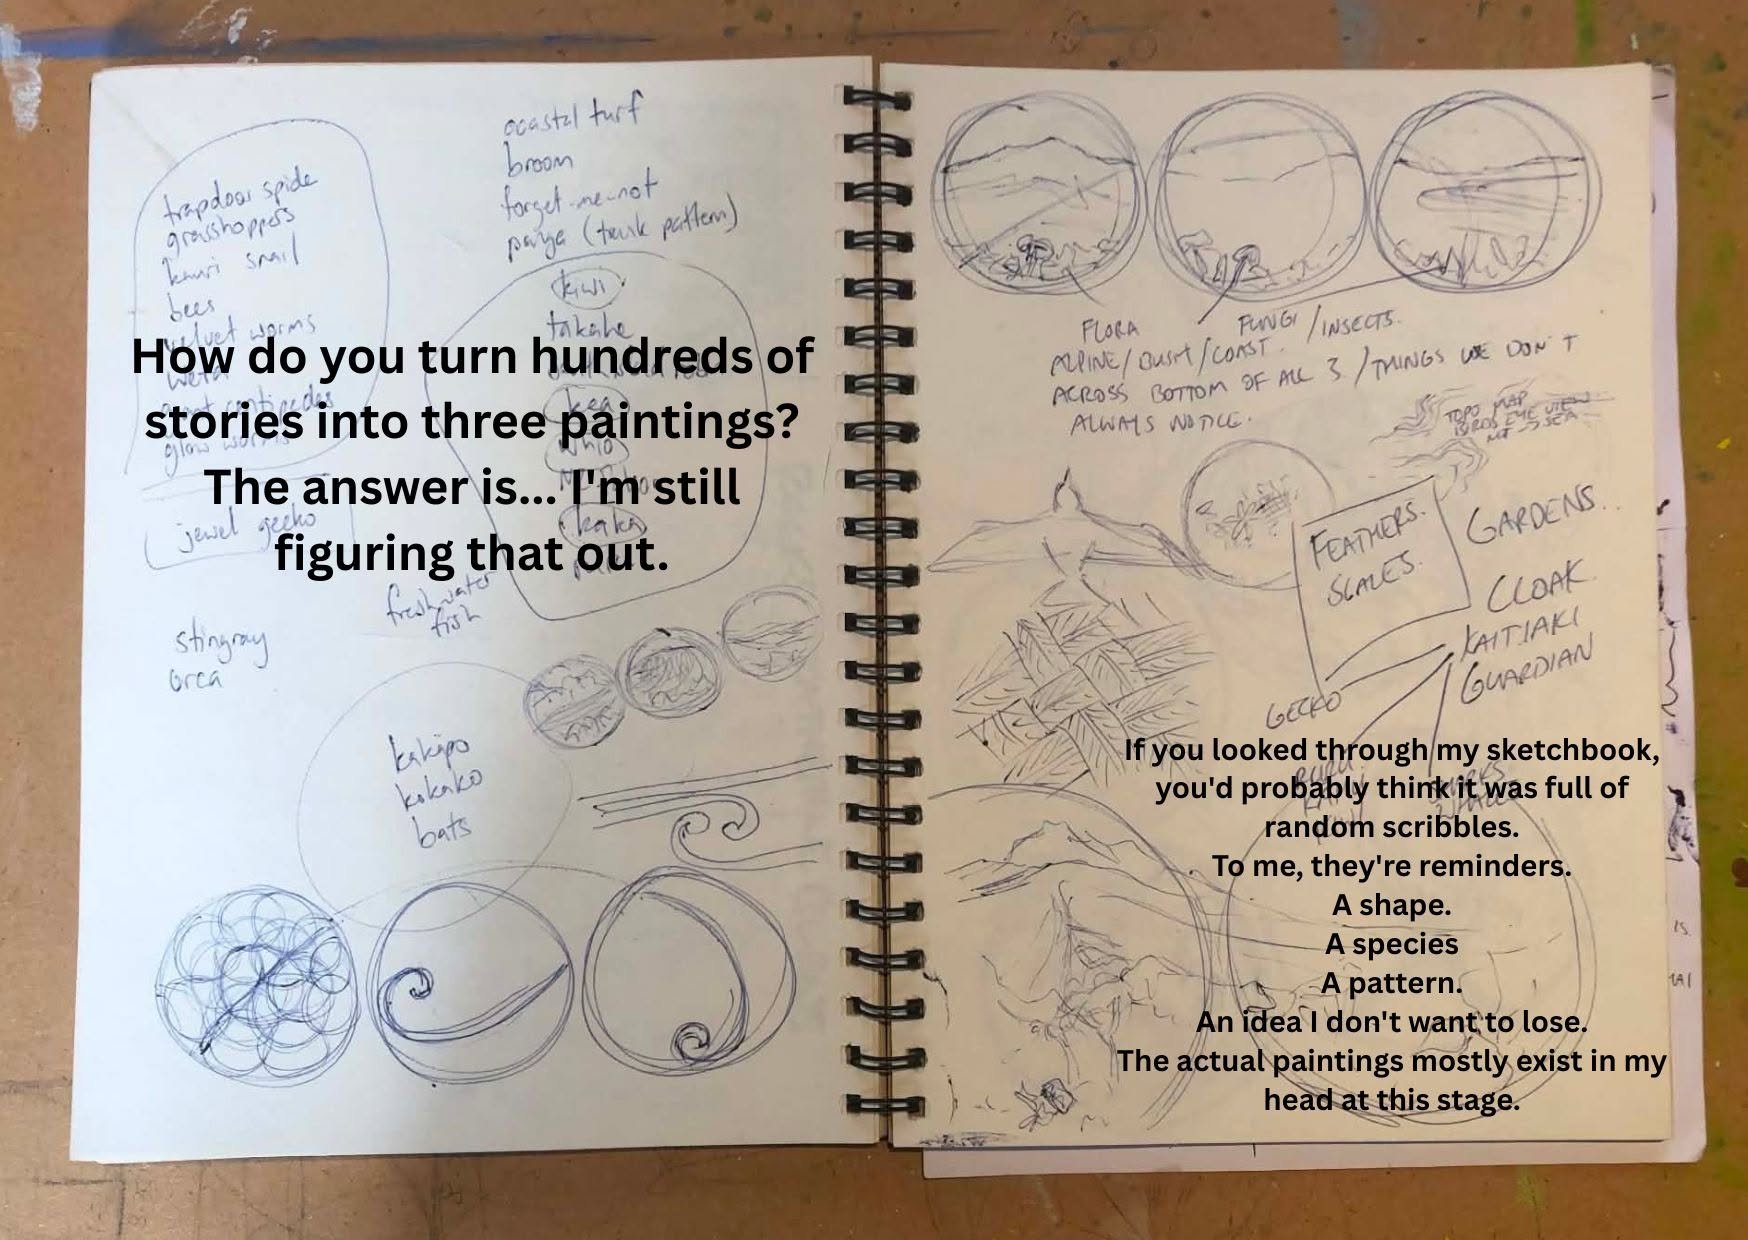 trapdoor spide
grasshoppers
kauri snail
bees
velvet worms
weta
giant centipedes
glow worms
jewel gecko
coastal turf
broom
forget-me-not
(trunk pattern)
kiwi
takahe
kea
whio
kaka
How do you turn hundreds of
stories into three paintings?
The answer is... I'm still
figuring that out.
freshwater
fish
stingray
orca
kakapo
kokako
bats
FLORA
FUNGI / INSECTS.
ALPINE / BUSH / COAST.
ACROSS BOTTOM OF ALL 3. / THINGS WE DON'T
ALWAYS NOTICE.
TOPO MAP
BIRDS EYE VIEW
MT → SEA
FEATHERS.
SCALES.
GARDENS..
CLOAK
KAITIAKI
GUARDIAN
GECKO
If you looked through my sketchbook,
you'd probably think it was full of
random scribbles.
To me, they're reminders.
A shape.
A species
A pattern.
An idea I don't want to lose.
The actual paintings mostly exist in my
head at this stage.